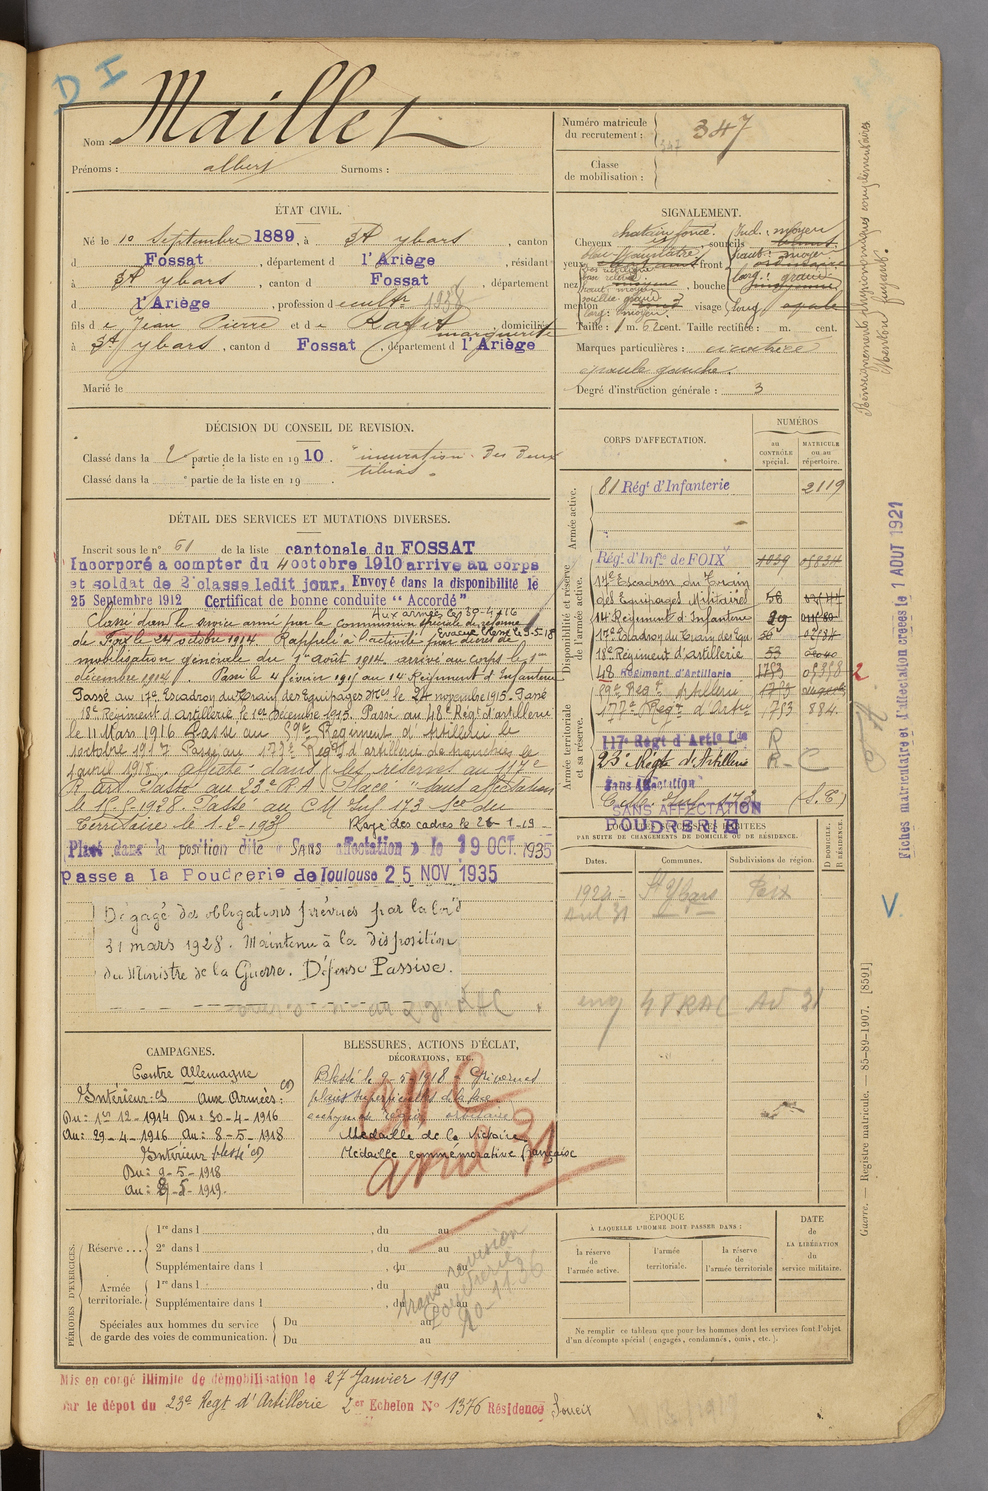 D I
Nom : Maillet
Prénoms : albert Surnoms :
Numéro matricule du recrutement : 347
347
Classe de mobilisation :
ÉTAT CIVIL.
Né le 10 Septembre 1889, à St ybars, canton
d Fossat, département d l'Ariège, résidant
à St ybars, canton d Fossat, département
d l'Ariège, profession d cult 1938
fils de Jean Pierre et de Rafit marguerite, domiciliés
à St ybars, canton d Fossat, département d l'Ariège
Marié le
SIGNALEMENT.
Cheveux chatain foncé, sourcils
yeux front
nez bouche
menton visage
Taille : 1 m. 62 cent. Taille rectifiée : m. cent.
Marques particulières : cicatrice
épaule gauche.
Degré d'instruction générale : 3
Renseignements physionomiques complémentaires
Menton fuyant.
DÉCISION DU CONSEIL DE REVISION.
Classé dans la 2 partie de la liste en 1910. "incurvation des deux
Classé dans la partie de la liste en 19 . tibias"
DÉTAIL DES SERVICES ET MUTATIONS DIVERSES.
Inscrit sous le n° 61 de la liste cantonale du FOSSAT
Incorporé a compter du 4 octobre 1910 arrive au corps
et soldat de 2e classe ledit jour. Envoyé dans la disponibilité le
25 Septembre 1912 Certificat de bonne conduite "Accordé"
Aux armées le 30-4-16
Classé dans le service armé par la Commission spéciale de réforme
de Foix le 24 octobre 1914. Rappelé à l'activité par décret de
mobilisation générale du 1er août 1914 arrivé au corps le 1er
décembre 1914. Passé le 4 février 1915 au 14 Régiment d'Infanterie
Passé au 17e Escadron du Train des Equipages Mres le 24 novembre 1915. Passé
18e Régiment d'artillerie le 1er Décembre 1915. Passé au 48e Régt d'artillerie
le 11 Mars 1916. Passé au 59e Régiment d'Artillerie le
1 octobre 1917 Passé au 177e Régt d'artillerie de tranchées le
4 avril 1918. affecté dans les réserves au 117e
R. art. Passé au 23e R.A. Placé "sans affectation
le 1-5-1928. Passé au CM Inf 173 Son du
Territoire le 1-2-1931 Rayé des cadres le 26-1-39
Placé dans la position dite "SANS affectation" le 19 OCT. 1935
passe a la Poudrerie de Toulouse 25 NOV 1935
Dégagé des obligations prévues par la loi du
31 mars 1928. Maintenu à la disposition
du Ministre de la Guerre. Défense Passive.
CORPS D'AFFECTATION.
NUMÉROS
au CONTRÔLE spécial.
MATRICULE ou au répertoire.
Armée active.
81 Régt d'Infanterie 2119
Disponibilité et réserve de l'armée active.
Régt d'Infie de FOIX 1039
17e Escadron du Train
des Equipages Militaires 56
14 Régiment d'Infanterie 29
17e Escadron du Train des Equi. 56
18e Régiment d'artillerie 53
48 Régiment d'Artillerie 1753 05358 2
Armée territoriale et sa réserve.
59e Régt d'Artillerie 1753
177e Régt d'Artie 1753 884.
117e Régt d'Artie Lde R
23e Régt d'Artillerie R - C
Sans Affectation
(S.T)
SANS AFFECTATION
POUDRERIE
PAR SUITE DE CHANGEMENTS DE DOMICILE OU DE RÉSIDENCE.
Dates. Communes. Subdivisions de région. D DOMICILE. R RÉSIDENCE.
1920 - St Ybars Foix
Avril 31
48 RAC
Fiches matriculaire et d'affectation créées le 1 AOUT 1921
V.
Guerre. — Registre matricule. — 85-89-1907. [8591]
CAMPAGNES.
Contre Allemagne
Intérieur : Aux Armées :
Du : 1er 12 - 1914 Du : 30-4-1916
Au : 29-4-1916 Au : 8-5-1918
Intérieur blessé
Du : 9-5-1918
Au : 21-5-1919.
BLESSURES, ACTIONS D'ÉCLAT,
DÉCORATIONS, ETC.
Blessé le 9-5-1918
plaies superficielles de la face
Médaille de la victoire
Médaille commémorative française
avril 31
PÉRIODES D'EXERCICES.
Réserve ... 1re dans l , du au
2e dans l , du au
Supplémentaire dans l , du au
Armée territoriale. 1re dans l , du au
Supplémentaire dans l , du au
Spéciales aux hommes du service de garde des voies de communication. Du au
Du au
Poudrerie
20-11-36
ÉPOQUE
À LAQUELLE L'HOMME DOIT PASSER DANS :
la réserve de l'armée active.
l'armée territoriale.
la réserve de l'armée territoriale
DATE DE LA LIBÉRATION du service militaire.
Ne remplir ce tableau que pour les hommes dont les services font l'objet
d'un décompte spécial (engagés, condamnés, omis, etc.).
Mis en congé illimité de démobilisation le 27 Janvier 1919
par le dépot du 23e Regt d'Artillerie 2er Echelon No 1376 Résidence Soueix